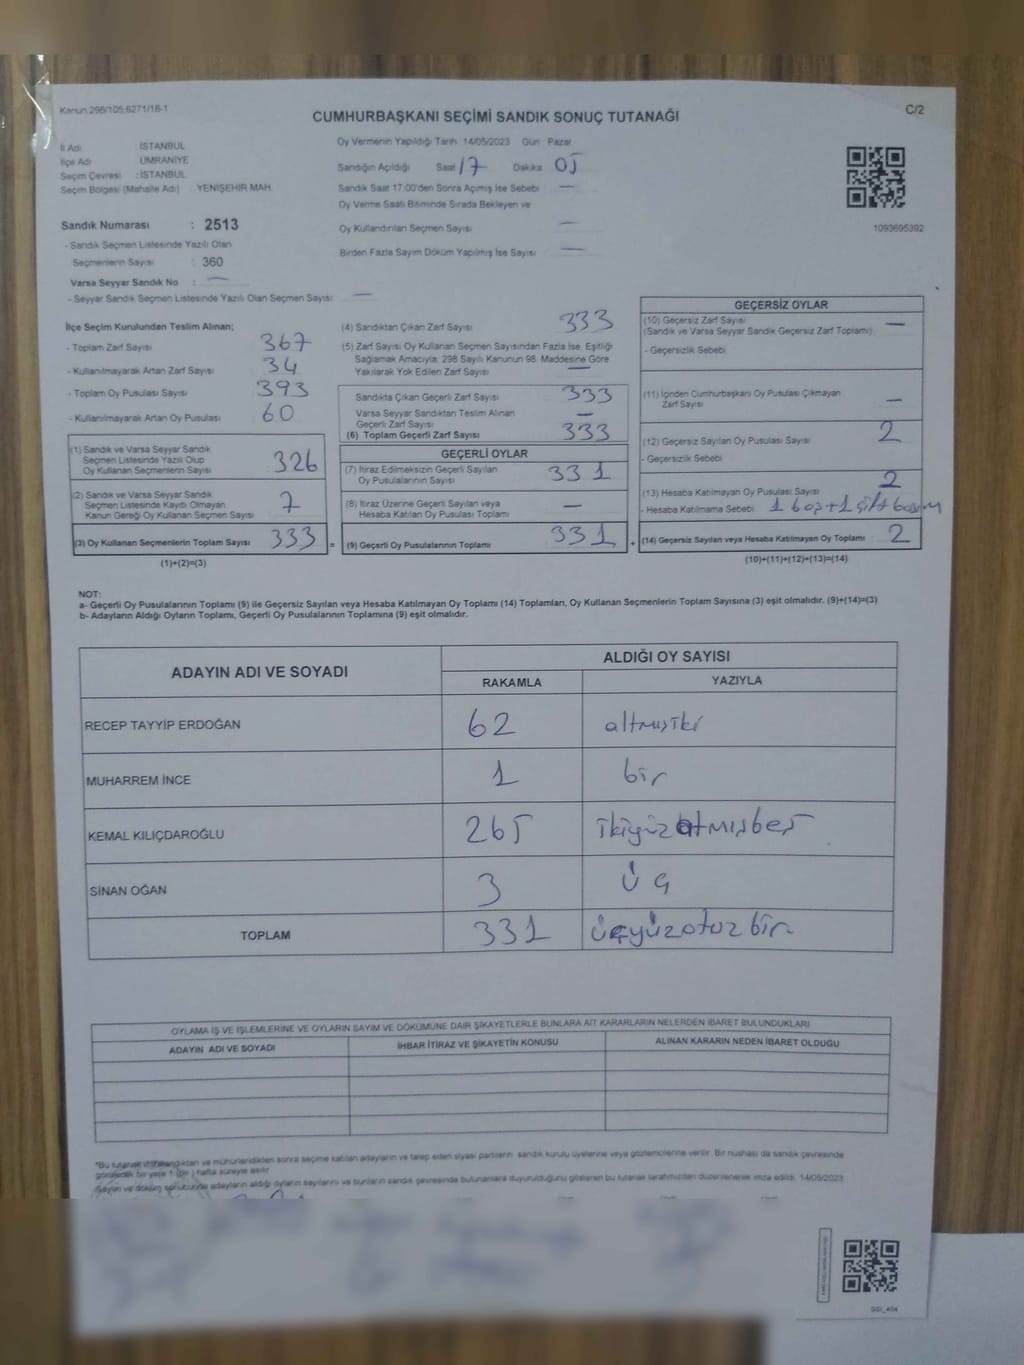 Kanun:298/105,6271/16-1
C/2
CUMHURBAŞKANI SEÇİMİ SANDIK SONUÇ TUTANAĞI
İl Adı İSTANBUL
İlçe Adı ÜMRANİYE
Seçim Çevresi : İSTANBUL
Seçim Bölgesi (Mahalle Adı) YENİŞEHİR MAH
Oy Vermenin Yapıldığı Tarih 14/05/2023 Gün Pazar
Sandığın Açıldığı Saat 17 Dakika 05
Sandık Saat 17.00'den Sonra Açımış İse Sebebi —
Oy Verme Saati Bitiminde Sırada Bekleyen ve
Oy Kullandırılan Seçmen Sayısı —
Birden Fazla Sayım Döküm Yapılmış İse Sayısı —
1093695392
Sandık Numarası : 2513
- Sandık Seçmen Listesinde Yazılı Olan
Seçmenlerin Sayısı : 360
Varsa Seyyar Sandık No : —
- Seyyar Sandık Seçmen Listesinde Yazılı Olan Seçmen Sayısı —
İlçe Seçim Kurulundan Teslim Alınan;
- Toplam Zarf Sayısı 367
- Kullanılmayarak Artan Zarf Sayısı 34
- Toplam Oy Pusulası Sayısı 393
- Kullanılmayarak Artan Oy Pusulası 60
(1) Sandık ve Varsa Seyyar Sandık
Seçmen Listesinde Yazılı Olup
Oy Kullanan Seçmenlerin Sayısı 326
(2) Sandık ve Varsa Seyyar Sandık
Seçmen Listesinde Kayıtlı Olmayan
Kanun Gereği Oy Kullanan Seçmen Sayısı 7
(3) Oy Kullanan Seçmenlerin Toplam Sayısı 333 =
(1)+(2)=(3)
(4) Sandıktan Çıkan Zarf Sayısı 333
(5) Zarf Sayısı Oy Kullanan Seçmen Sayısından Fazla İse, Eşitliği
Sağlamak Amacıyla, 298 Sayılı Kanunun 98. Maddesine Göre
Yakılarak Yok Edilen Zarf Sayısı —
Sandıkta Çıkan Geçerli Zarf Sayısı 333
Varsa Seyyar Sandıktan Teslim Alınan
Geçerli Zarf Sayısı —
(6) Toplam Geçerli Zarf Sayısı 333
GEÇERLİ OYLAR
(7) İtiraz Edilmeksizin Geçerli Sayılan
Oy Pusulalarının Sayısı 331
(8) İtiraz Üzerine Geçerli Sayılan veya
Hesaba Katılan Oy Pusulası Toplamı —
(9) Geçerli Oy Pusulalarının Toplamı 331 +
GEÇERSİZ OYLAR
(10) Geçersiz Zarf Sayısı —
(Sandık ve Varsa Seyyar Sandık Geçersiz Zarf Toplamı)
- Geçersizlik Sebebi
(11) İçinden Cumhurbaşkanı Oy Pusulası Çıkmayan
Zarf Sayısı —
(12) Geçersiz Sayılan Oy Pusulası Sayısı 2
- Geçersizlik Sebebi
(13) Hesaba Katılmayan Oy Pusulası Sayısı 2
- Hesaba Katılmama Sebebi 1 boş+1 çift basım
(14) Geçersiz Sayılan veya Hesaba Katılmayan Oy Toplamı 2
(10)+(11)+(12)+(13)=(14)
NOT:
a- Geçerli Oy Pusulalarının Toplamı (9) ile Geçersiz Sayılan veya Hesaba Katılmayan Oy Toplamı (14) Toplamları, Oy Kullanan Seçmenlerin Toplam Sayısına (3) eşit olmalıdır. (9)+(14)=(3)
b- Adayların Aldığı Oyların Toplamı, Geçerli Oy Pusulalarının Toplamına (9) eşit olmalıdır.
ADAYIN ADI VE SOYADI ALDIĞI OY SAYISI
RAKAMLA YAZIYLA
RECEP TAYYİP ERDOĞAN 62 altmışiki
MUHARREM İNCE 1 bir
KEMAL KILIÇDAROĞLU 265 ikiyüzaltmışbeş
SİNAN OĞAN 3 üç
TOPLAM 331 üçyüzotuzbir
OYLAMA İŞ VE İŞLEMLERİNE VE OYLARIN SAYIM VE DÖKÜMÜNE DAİR ŞİKAYETLERLE BUNLARA AİT KARARLARIN NELERDEN İBARET BULUNDUKLARI
ADAYIN ADI VE SOYADI İHBAR İTİRAZ VE ŞİKAYETİN KONUSU ALINAN KARARIN NEDEN İBARET OLDUĞU
*Bu tutanak imzalandıktan ve mühürlendikten sonra seçime katılan adayların ve talep eden siyasi partilerin sandık kurulu üyelerine veya gözlemcilerine verilir. Bir nüshası da sandık çevresinde
görülecek bir yere 1 (bir) hafta süreyle asılır.
Sayım ve döküm sonucunda adayların aldığı oyların sayılarını ve bunların sandık çevresinde bulunanlara duyurulduğunu gösteren bu tutanak tarafımızdan düzenlenerek imza edildi. 14/05/2023